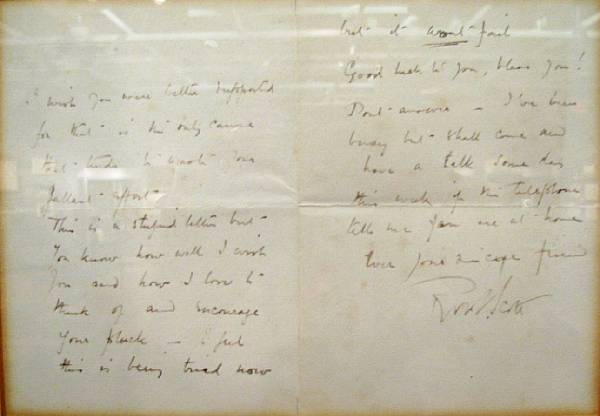 I wish you were better supported
for that is the only cause
that tends to your
gallant effort
This is a stupid letter but
You know how well I wish
You and how I love to
think of and encourage
Your pluck – I feel
this is being tried now
but it won't fail
Good luck to you, bless you!
Don't answer – I've been
busy but shall come and
have a talk some day
this week if the telephone
tells me you are at home
Ever your sincere friend
Scott